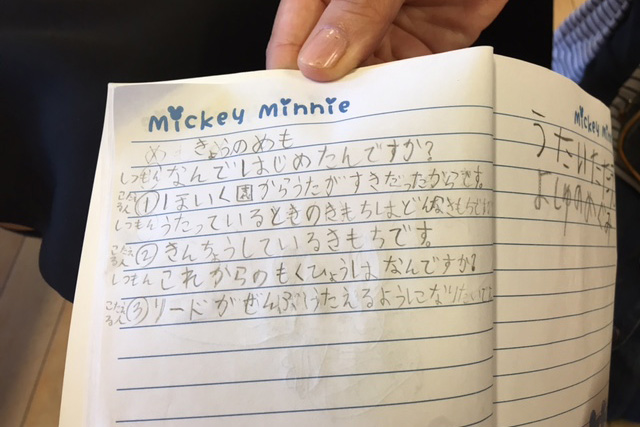 Mickey Minnie
め きょうのめも
しつもん なんではじめたんですか?
こたえる人 ① ほいく園からうたがすきだったからです。
しつもん うたっているときのきもちはどんなきもちですか
こたえる人 ② きんちょうしているきもちです。
しつもん これからのもくひょうは なんですか?
こたえる人 ③ リードがぜんぶうたえるようになりたいです
Mickey Minn
うたいただ